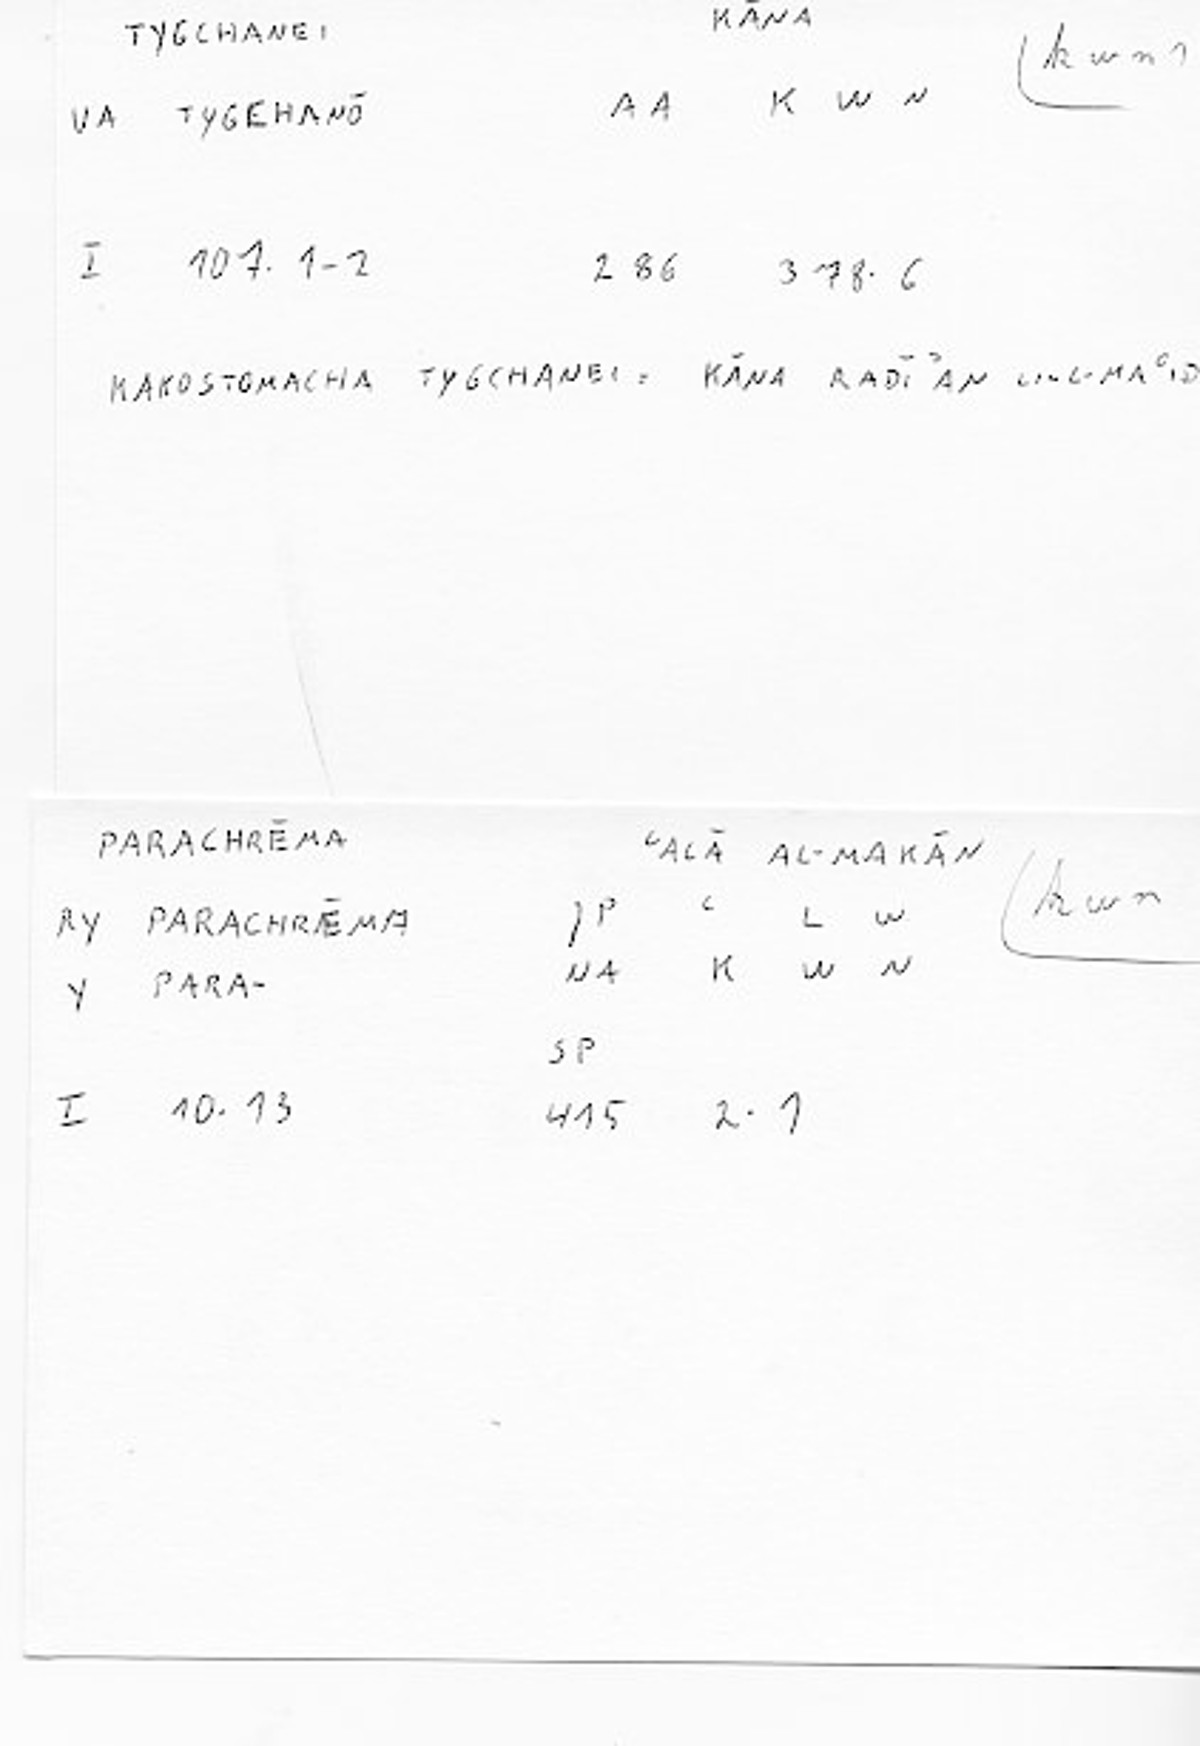 TYGCHANEI KĀNA (kwn1
VA TYGEHANŌ AA K W N
I 107. 1-2 286 378. 6
KAKOSTOMACHA TYGCHANEI: KĀNA RADĪʾAN LI-L-MAʿID
PARACHRĒMA ʿALĀ AL-MAKĀN (kwn
RY PARACHRĒMA JP ʿ L W
Y PARA- NA K W N
SP
I 10. 13 415 2. 1